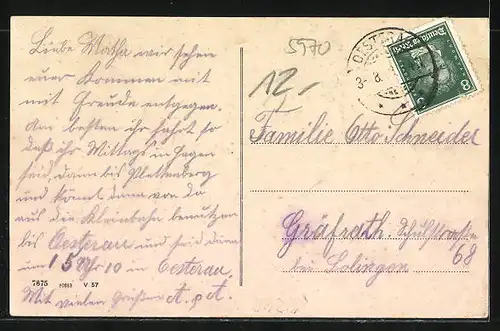 Liebe Martha wir sehen
euer Kommen mit
mit Freude entgegen.
Am besten ihr fahrt so
daß ihr Mittags in Hagen
seid, dann bis Plettenberg
und könnt dann von da
auf die Kleinbahn benutzen
bis Oesterau und seid dann
um 15 Uhr 10 in Oesterau.
Mit vielen Grüßen
7675 V 57
5970
12.-
OESTERAU
3. 8.
Deutsches Reich
8 8
Familie Otto Schneider
Gräfrath. Schulstraße
68
bei Solingen